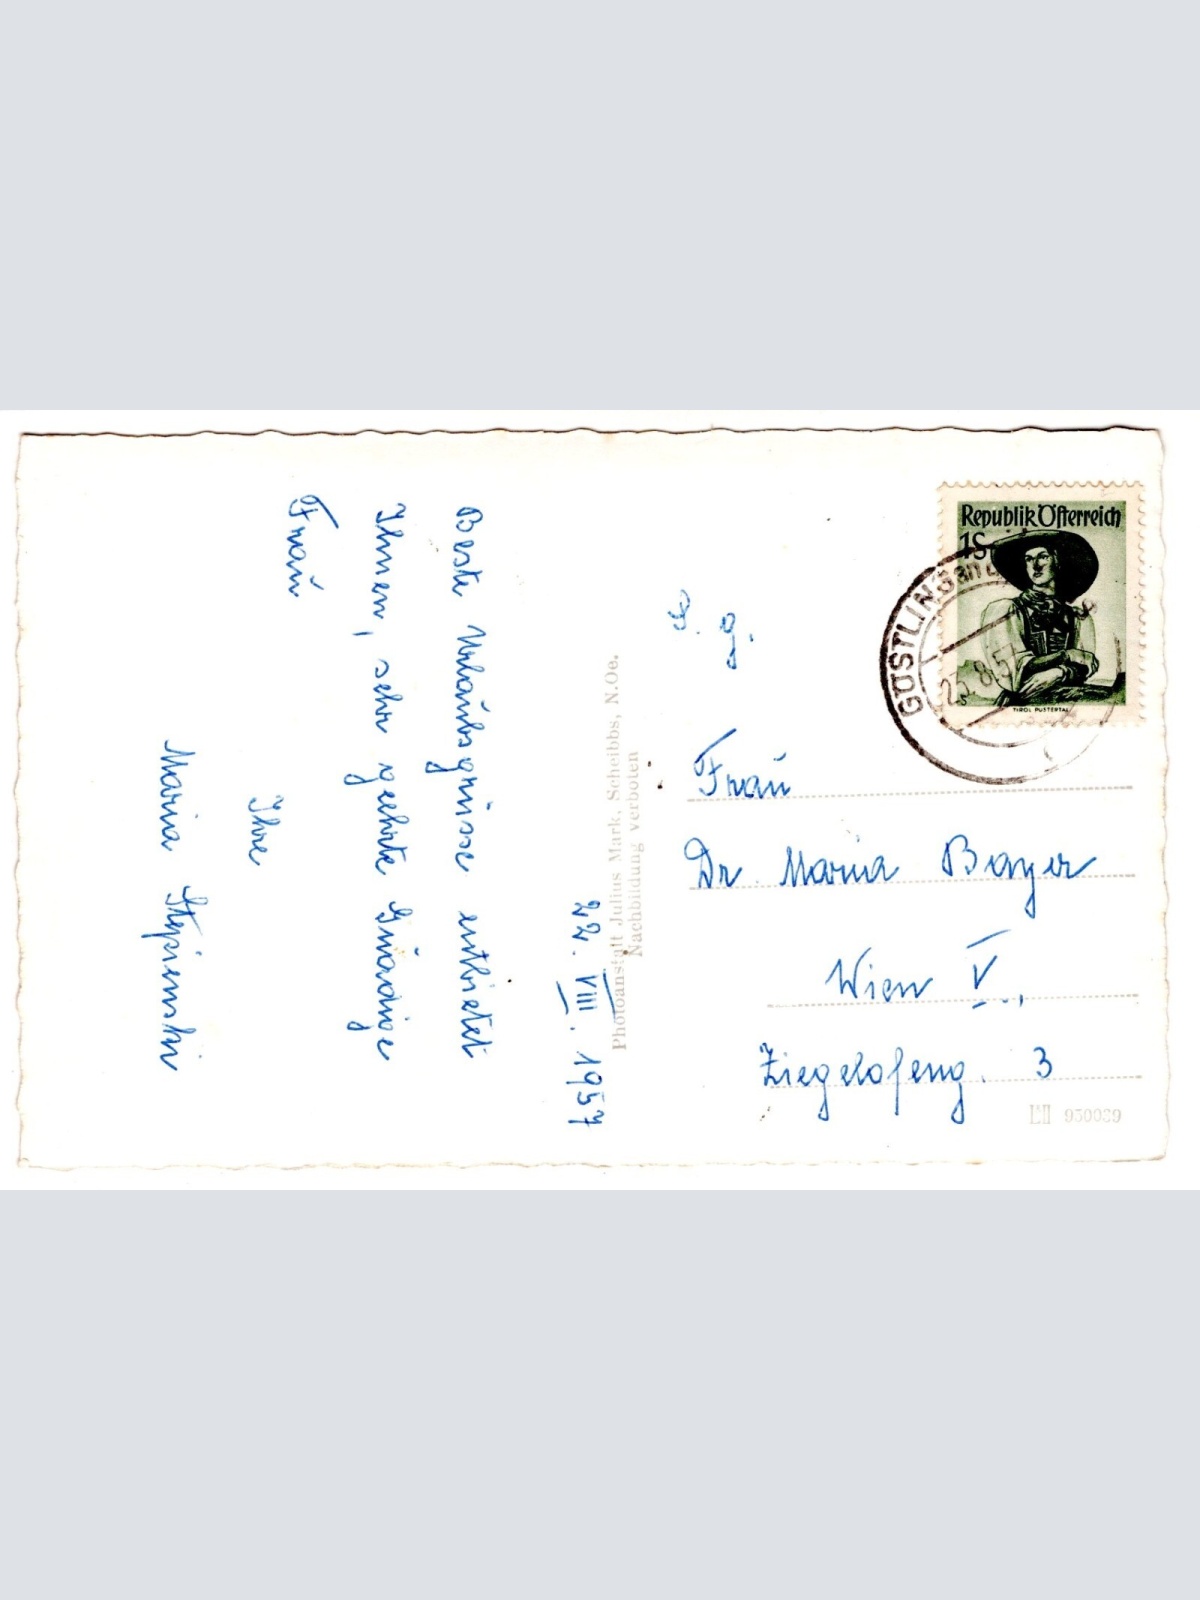 22. VIII. 1957
Beste Urlaubsgrüsse entbietet
Ihnen, sehr geehrte Gnädige
Frau
Ihre
Maria Stepienski
Photoanstalt Julius Mark, Scheibbs, N.Oe.
Nachbildung verboten
Republik Österreich
1S
TIROL PUSTERTAL
GÖSTLING an
25.8.57
S. g.
Frau
Dr. Maria Bayer
Wien V.,
Ziegelofeng. 3